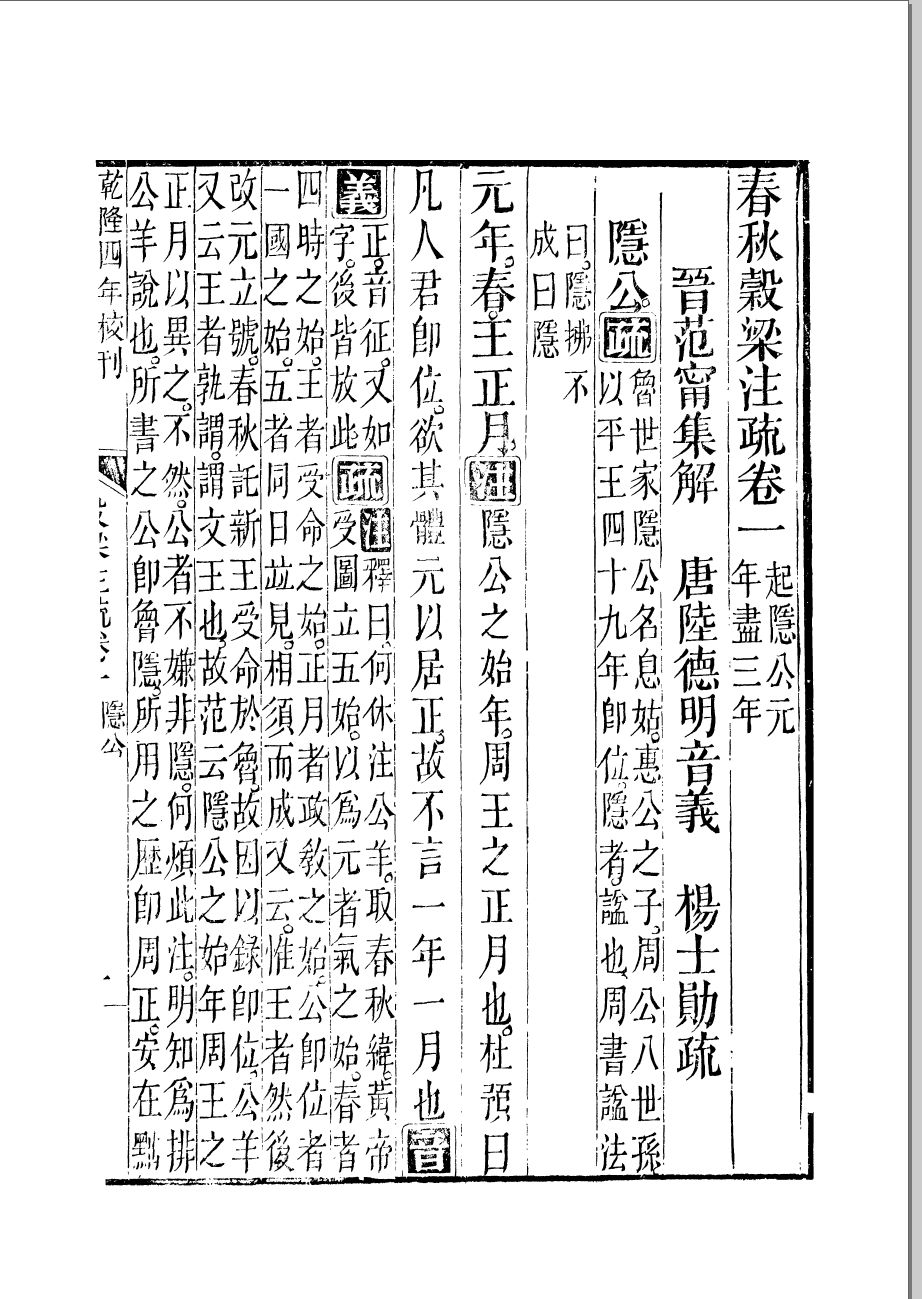 春秋穀梁注疏卷一 起隱公元
年盡三年
晉范甯集解 唐陸德明音義 楊士勛疏
隱公。疏 魯世家隱公名息姑。惠公之子。周公八世孫
以平王四十九年卽位。隱者。諡也。周書諡法
曰。隱拂不
成曰隱
元年。春。王正月。注隱公之始年。周王之正月也。杜預曰
凡人君卽位。欲其體元以居正。故不言一年一月也音
義 正。音征。又如
字。後皆放此
疏 注釋曰。何休注公羊。取春秋緯。黃帝
受圖立五始。以爲元者氣之始。春者
四時之始。王者受命之始。正月者政教之始。公卽位者
一國之始。五者同日竝見。相須而成。又云。惟王者然後
改元立號。春秋託新王受命於魯。故因以錄卽位。公羊
又云王者孰謂。謂文王也。故范云隱公之始年周王之
正月以異之。不然。公者不嫌非隱。何煩此注。明知爲排
公羊說也。所書之公卽魯隱。所用之歷卽周正。安在黜
乾隆四年校刊 隱公 一